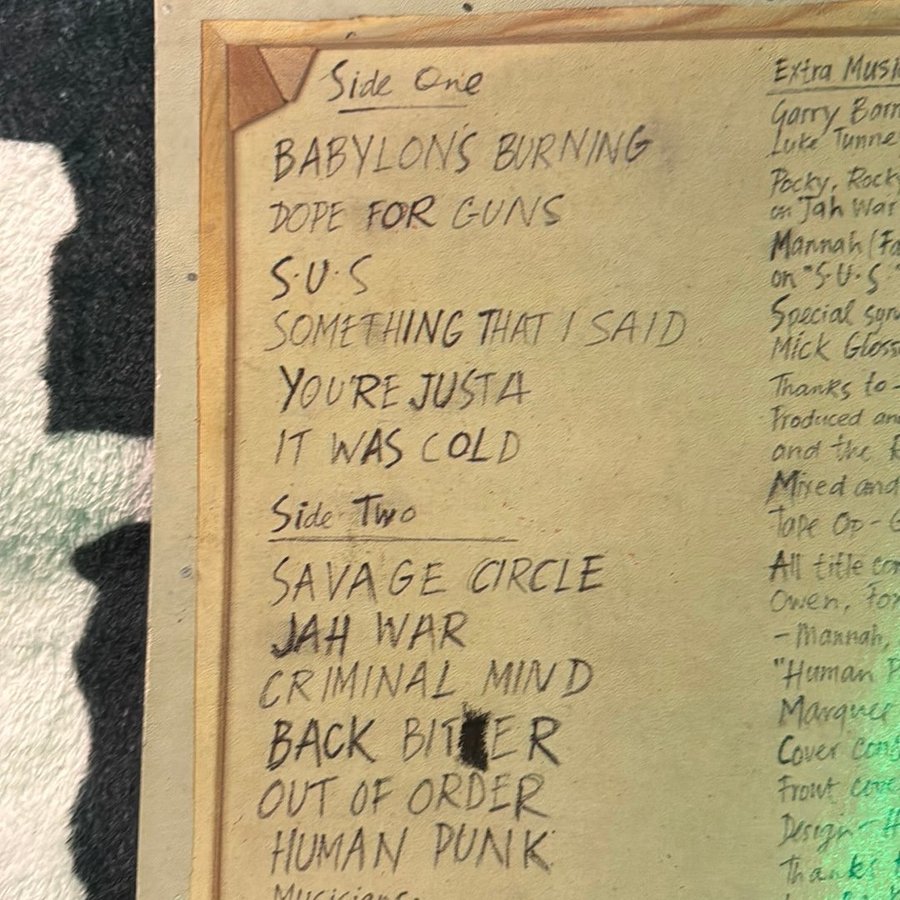 Side One
BABYLON'S BURNING
DOPE FOR GUNS
S·U·S
SOMETHING THAT I SAID
YOU'RE JUST A
IT WAS COLD
Side Two
SAVAGE CIRCLE
JAH WAR
CRIMINAL MIND
BACK BITER
OUT OF ORDER
HUMAN PUNK
Musicians:
Extra
Garry
Luke
Pocky,
on Jah War
Mannah
on "S·U·S·"
Special
Mick
Thanks to-
Produced
and the
Mixed and
Tape Op-
All title
Owen,
-Mannah,
"Human
Marquee
Cover
Front
Design-
Thanks